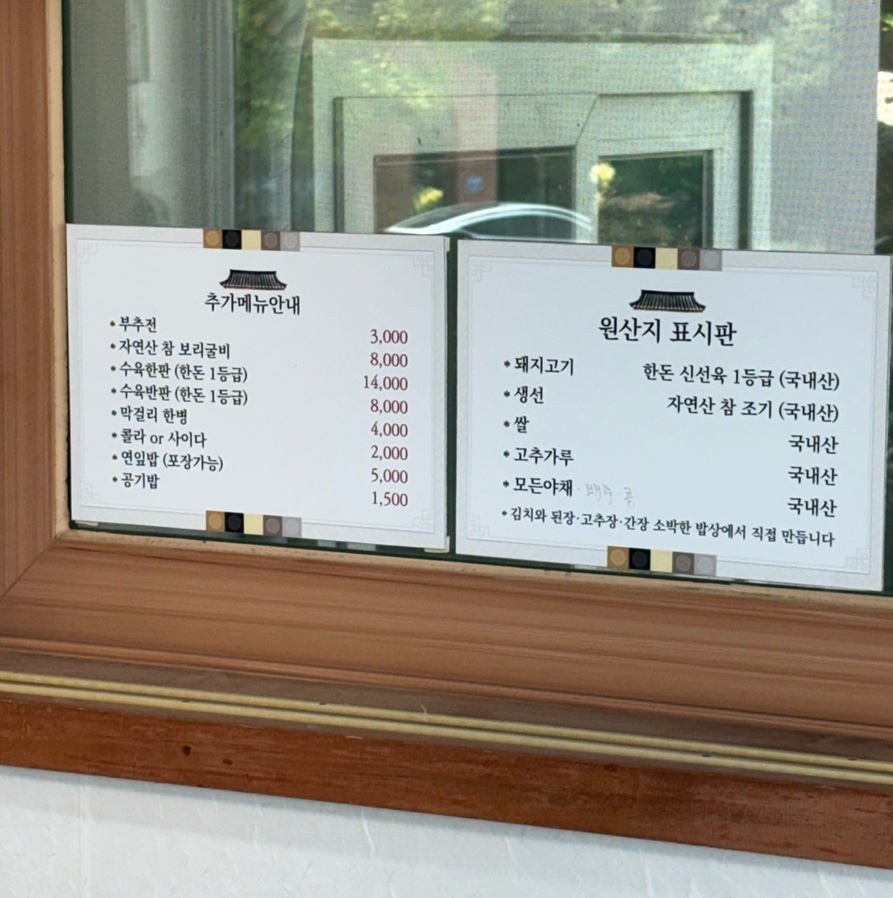 추가메뉴안내
* 부추전 3,000
* 자연산 참 보리굴비 8,000
* 수육한판 (한돈 1등급) 14,000
* 수육반판 (한돈 1등급) 8,000
* 막걸리 한병 4,000
* 콜라 or 사이다 2,000
* 연잎밥 (포장가능) 5,000
* 공기밥 1,500
원산지 표시판
* 돼지고기 한돈 신선육 1등급 (국내산)
* 생선 자연산 참 조기 (국내산)
* 쌀 국내산
* 고추가루 국내산
* 모든야채 · 배추 · 콩 국내산
* 김치와 된장·고추장·간장 소박한 밥상에서 직접 만듭니다